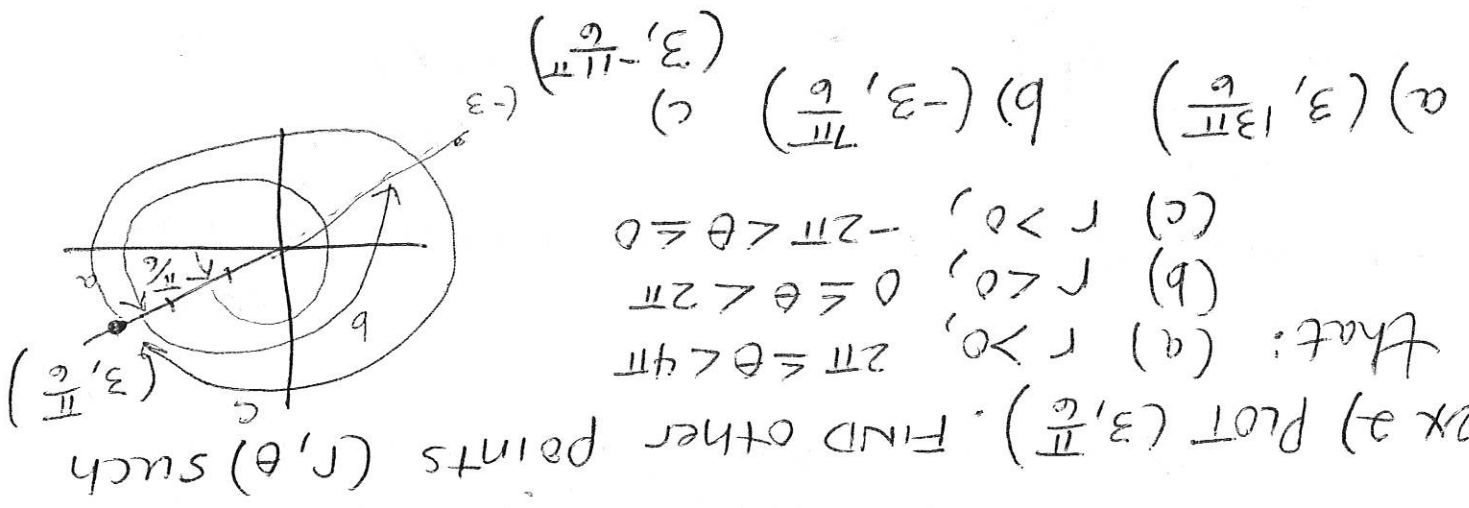 2x 2) PLOT (3, π/6). FIND other points (r, θ) such
that: (a) r >0, 2π ≤ θ < 4π
(b) r <0, 0 ≤ θ < 2π
(c) r >0, -2π < θ ≤ 0
a) (3, 13π/6) b) (-3, 7π/6) c) (3, -11π/6)
(3, π/6)
c
b
a
π/6
(-3